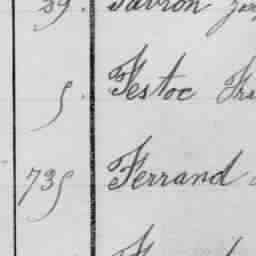 39. Favron
5. Festoc
735 Ferrand